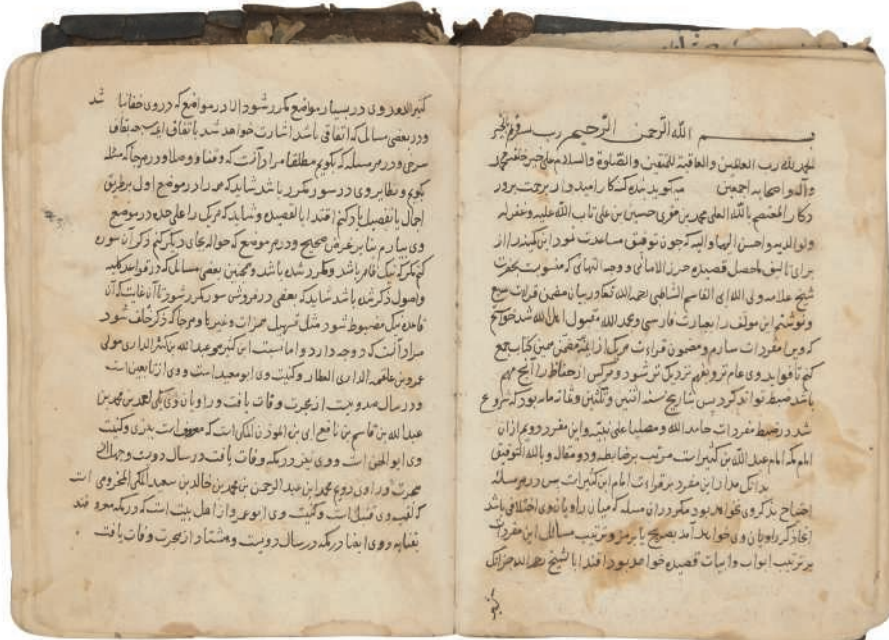 بسم الله الرحمن الرحیم رب
الحمد لله رب العالمین والعاقبة للمتقین والصلوة والسلام علی خیر خلقه محمد
وآله واصحابه اجمعین میکوید بنده کنه کار امیدوار برحمت پرور
دکار المعتصم بالله العلی محمد بن حسین بن علی تاب الله علیه وغفر له
ولوالدیه واحسن الیهما والیه که چون توفیق مساعدت نمود این کمینه را از
برای تالیف ما حصل قصیده حرز الامانی ووجه التهانی که منسوب بحضرت
شیخ علامه ولی الله ابی القاسم الشاطبی رحمه الله تعالی در بیان قراءت سبع
ونوشتم این مولف را بعبارت فارسی وبحمد الله مقبول اهل الله شد خواستم
که ویرا مفردات سازم ومضمون قراءت هر یک از ائمه کتاب جمع
کنم تا فواید وی عام تر وبفهم نزدیک تر شود وهر کس از حفاظ را آنچ مهم
باشد ضبط تواند کرد پس بتاریخ سنه اثنین وثلثین وثمانمایه بود که شروع
شد در ضبط مفردات حامدا لله ومصلیا علی نبیه واین مفرد دویم از آن
امام مکه امام عبد الله بن کثیر است مرتب بر ضابطه ودو مقاله وبالله التوفیق
بدانک مدار این مفرد بر قراءت امام ابن کثیر است پس در هر مسئله
احتیاج بذکر وی نخواهد بود مکر در آن مسئله که میان راویان وی اختلافی باشد
آنجا ذکر راویان وی خواهد آمد بصریح یا برمز وترتیب مسائل این مفردات
بر ترتیب ابواب وابیات قصیده خواهد بود اقتدا بالشیخ رحمه الله جز آنک
کثیر الدور وی در بسیار مواضع مکرر شود الا در مواضع که در وی خفائی باشد
ودر بعضی مسائل که اتفاقی باشد اشارت خواهد شد باتفاق
ودر هر مسئله که بکویم مطلقا مراد آنست که وقفا ووصلا ودر هر جا که مثله
بکویم ونظایر وی در سوره مکرر باشد شاید که همه را در موضع اول بطریق
اجمال یا تفصیل یاد کنم اقتدا بالقصیده وشاید که هر یک را علی حده در موضع
وی بیارم بنا بر غرض صحیح ودر هر موضع که حواله بجای دیکر کنم ذکر آن سوره
کنم مکر که نیک ظاهر باشد ومکرر شده باشد وهمچنین بعضی مسائل که در قواعد کلیه
واصول ذکر شده باشد شاید که بعضی در فروش سور مکرر شود تا آن غایت که آن
قاعده نیک مضبوط شود مثل تسهیل همزات وغیرها وهر جا که ذکر خلف شود
مراد آنست که دو وجه دارد واما نسبت ابن کثیر هو عبد الله بن کثیر الداری مولی
عمرو بن علقمه الداری العطار وکنیت وی ابو معبد است ووی از تابعین است
ودر سال صد وبیست از هجرت وفات یافت وراویان وی یکی احمد بن محمد بن
عبد الله بن قاسم بن نافع ابن ابی بزه المؤذن المکی است که معروف است ببزی وکنیت
وی ابو الحسن است ووی نیز در مکه وفات یافت در سال دویست وچهل از
هجرت وراوی دویم محمد ابن عبد الرحمن بن محمد بن خالد بن سعید المکی المخزومی است
که لقب وی قنبل است وکنیت وی ابو عمرو از اهل بیت است که در مکه معروفند
بقنابله ووی ایضا در مکه در سال دویست وهشتاد از هجرت وفات یافت